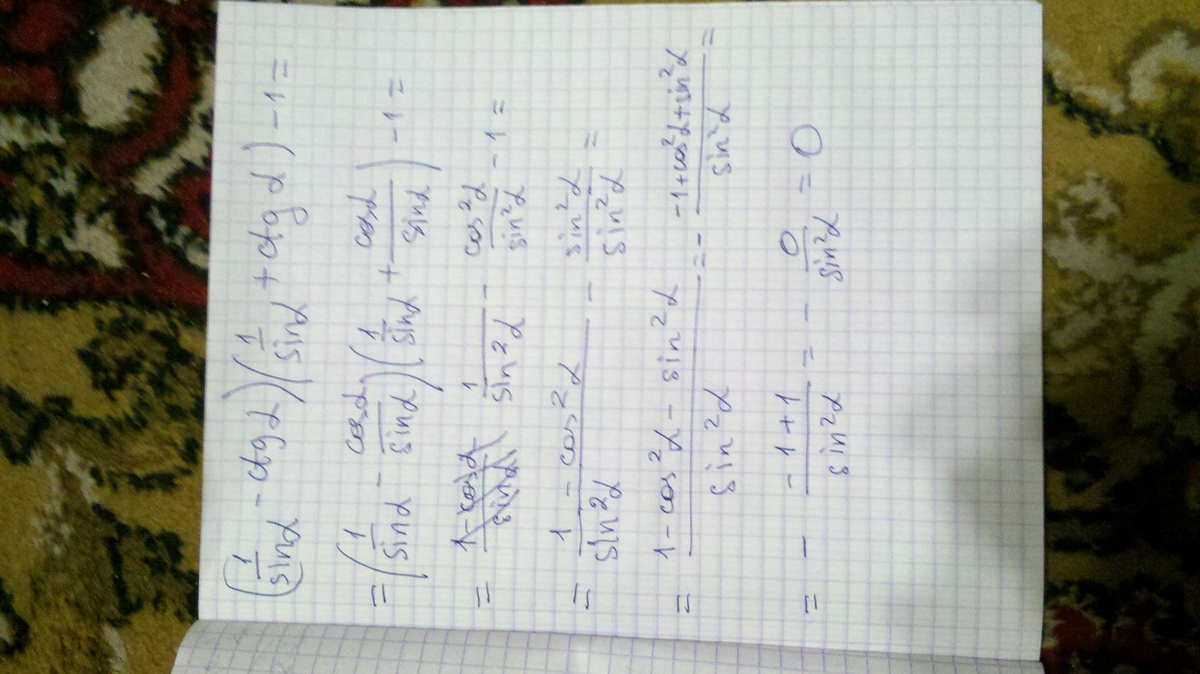 (1/sinα - ctgα)(1/sinα + ctgα) - 1 =
= (1/sinα - cosα/sinα)(1/sinα + cosα/sinα) - 1 =
= 1/sin²α - cos²α/sin²α - 1 =
= (1 - cos²α)/sin²α - sin²α/sin²α =
= (1 - cos²α - sin²α)/sin²α = - (-1 + cos²α + sin²α)/sin²α =
= - (-1 + 1)/sin²α = - 0/sin²α = 0